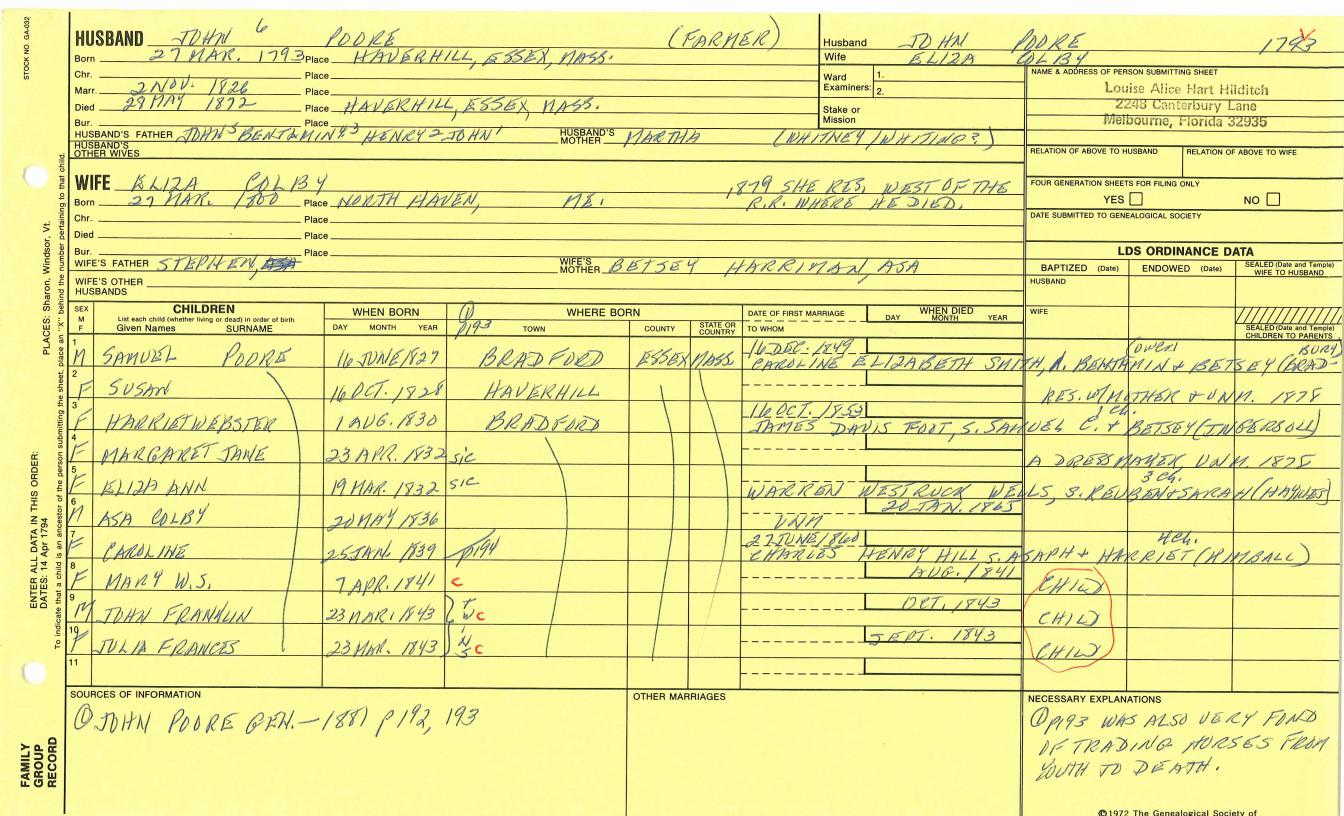 STOCK NO. GA-032
HUSBAND JOHN 6 POORE (FARMER)
Born 27 MAR. 1793 Place HAVERHILL, ESSEX, MASS.
Chr. Place
Marr. 2 NOV. 1826 Place
Died 29 MAY 1872 Place HAVERHILL, ESSEX MASS.
Bur. Place
HUSBAND'S FATHER JOHN5 BENJAMIN4,3 HENRY2 JOHN1 HUSBAND'S MOTHER MARTHA (WHITNEY/WHITING?)
HUSBAND'S OTHER WIVES
Husband JOHN POORE 1793
Wife ELIZA COLBY
Ward Examiners: 1.
2.
Stake or Mission
NAME & ADDRESS OF PERSON SUBMITTING SHEET
Louise Alice Hart Hilditch
2248 Canterbury Lane
Melbourne, Florida 32935
RELATION OF ABOVE TO HUSBAND RELATION OF ABOVE TO WIFE
FOUR GENERATION SHEETS FOR FILING ONLY
YES NO
DATE SUBMITTED TO GENEALOGICAL SOCIETY
WIFE ELIZA COLBY
1879 SHE RES. WEST OF THE
R.R. WHERE HE DIED.
Born 27 MAR. 1800 Place NORTH HAVEN, ME.
Chr. Place
Died Place
Bur. Place
WIFE'S FATHER STEPHEN, WIFE'S MOTHER BETSEY HARRIMAN, ASA
WIFE'S OTHER HUSBANDS
LDS ORDINANCE DATA
BAPTIZED (Date) ENDOWED (Date) SEALED (Date and Temple) WIFE TO HUSBAND
HUSBAND
WIFE
SEALED (Date and Temple) CHILDREN TO PARENTS
SEX M F
CHILDREN
List each child (whether living or dead) in order of birth
Given Names SURNAME
WHEN BORN
DAY MONTH YEAR
① p193
WHERE BORN
TOWN COUNTY STATE OR COUNTRY
DATE OF FIRST MARRIAGE
TO WHOM
WHEN DIED
DAY MONTH YEAR
1 M SAMUEL POORE 16 JUNE 1827 BRADFORD ESSEX MASS. 16 DEC. 1849
CAROLINE ELIZABETH SMITH, BENJAMIN & BETSEY (BRADBURY)
2 F SUSAN 16 OCT. 1828 HAVERHILL RES. W/MOTHER & UNM. 1878
3 F HARRIET WEBSTER 1 AUG. 1830 BRADFORD 16 OCT. 1853 1 Ch.
JAMES DAVIS FOOT, S. SAMUEL C. & BETSEY (INGERSOLL)
4 F MARGARET JANE 23 APR. 1832 sic A DRESSMAKER, UNM. 1875
5 F ELIZA ANN 19 MAR. 1832 sic 3 Ch.
WARREN WESTRUCK WELLS, S. REUBEN & SARAH (HAYNES)
6 M ASA COLBY 20 MAY 1836 UNM 20 JAN. 1865
7 F CAROLINE 25 JAN. 1839 p194 27 JUNE 1860 4 Ch.
CHARLES HENRY HILL S. ASAPH & HARRIET (KIMBALL)
8 F MARY W.S. 7 APR. 1841 C AUG. 1841 CHILD
9 M JOHN FRANKLIN 23 MAR. 1843 TWINS C OCT. 1843 CHILD
10 F JULIA FRANCES 23 MAR. 1843 C SEPT. 1843 CHILD
11
SOURCES OF INFORMATION
① JOHN POORE GEN. — 1881 p192, 193
OTHER MARRIAGES
NECESSARY EXPLANATIONS
① p193 WAS ALSO VERY FOND
OF TRADING HORSES FROM
YOUTH TO DEATH.
©1972 The Genealogical Society of
PLACES: Sharon, Windsor, Vt.
ENTER ALL DATA IN THIS ORDER:
DATES: 14 Apr 1794
To indicate that a child is an ancestor of the person submitting the sheet, place an "X" behind the number pertaining to that child.
FAMILY GROUP RECORD